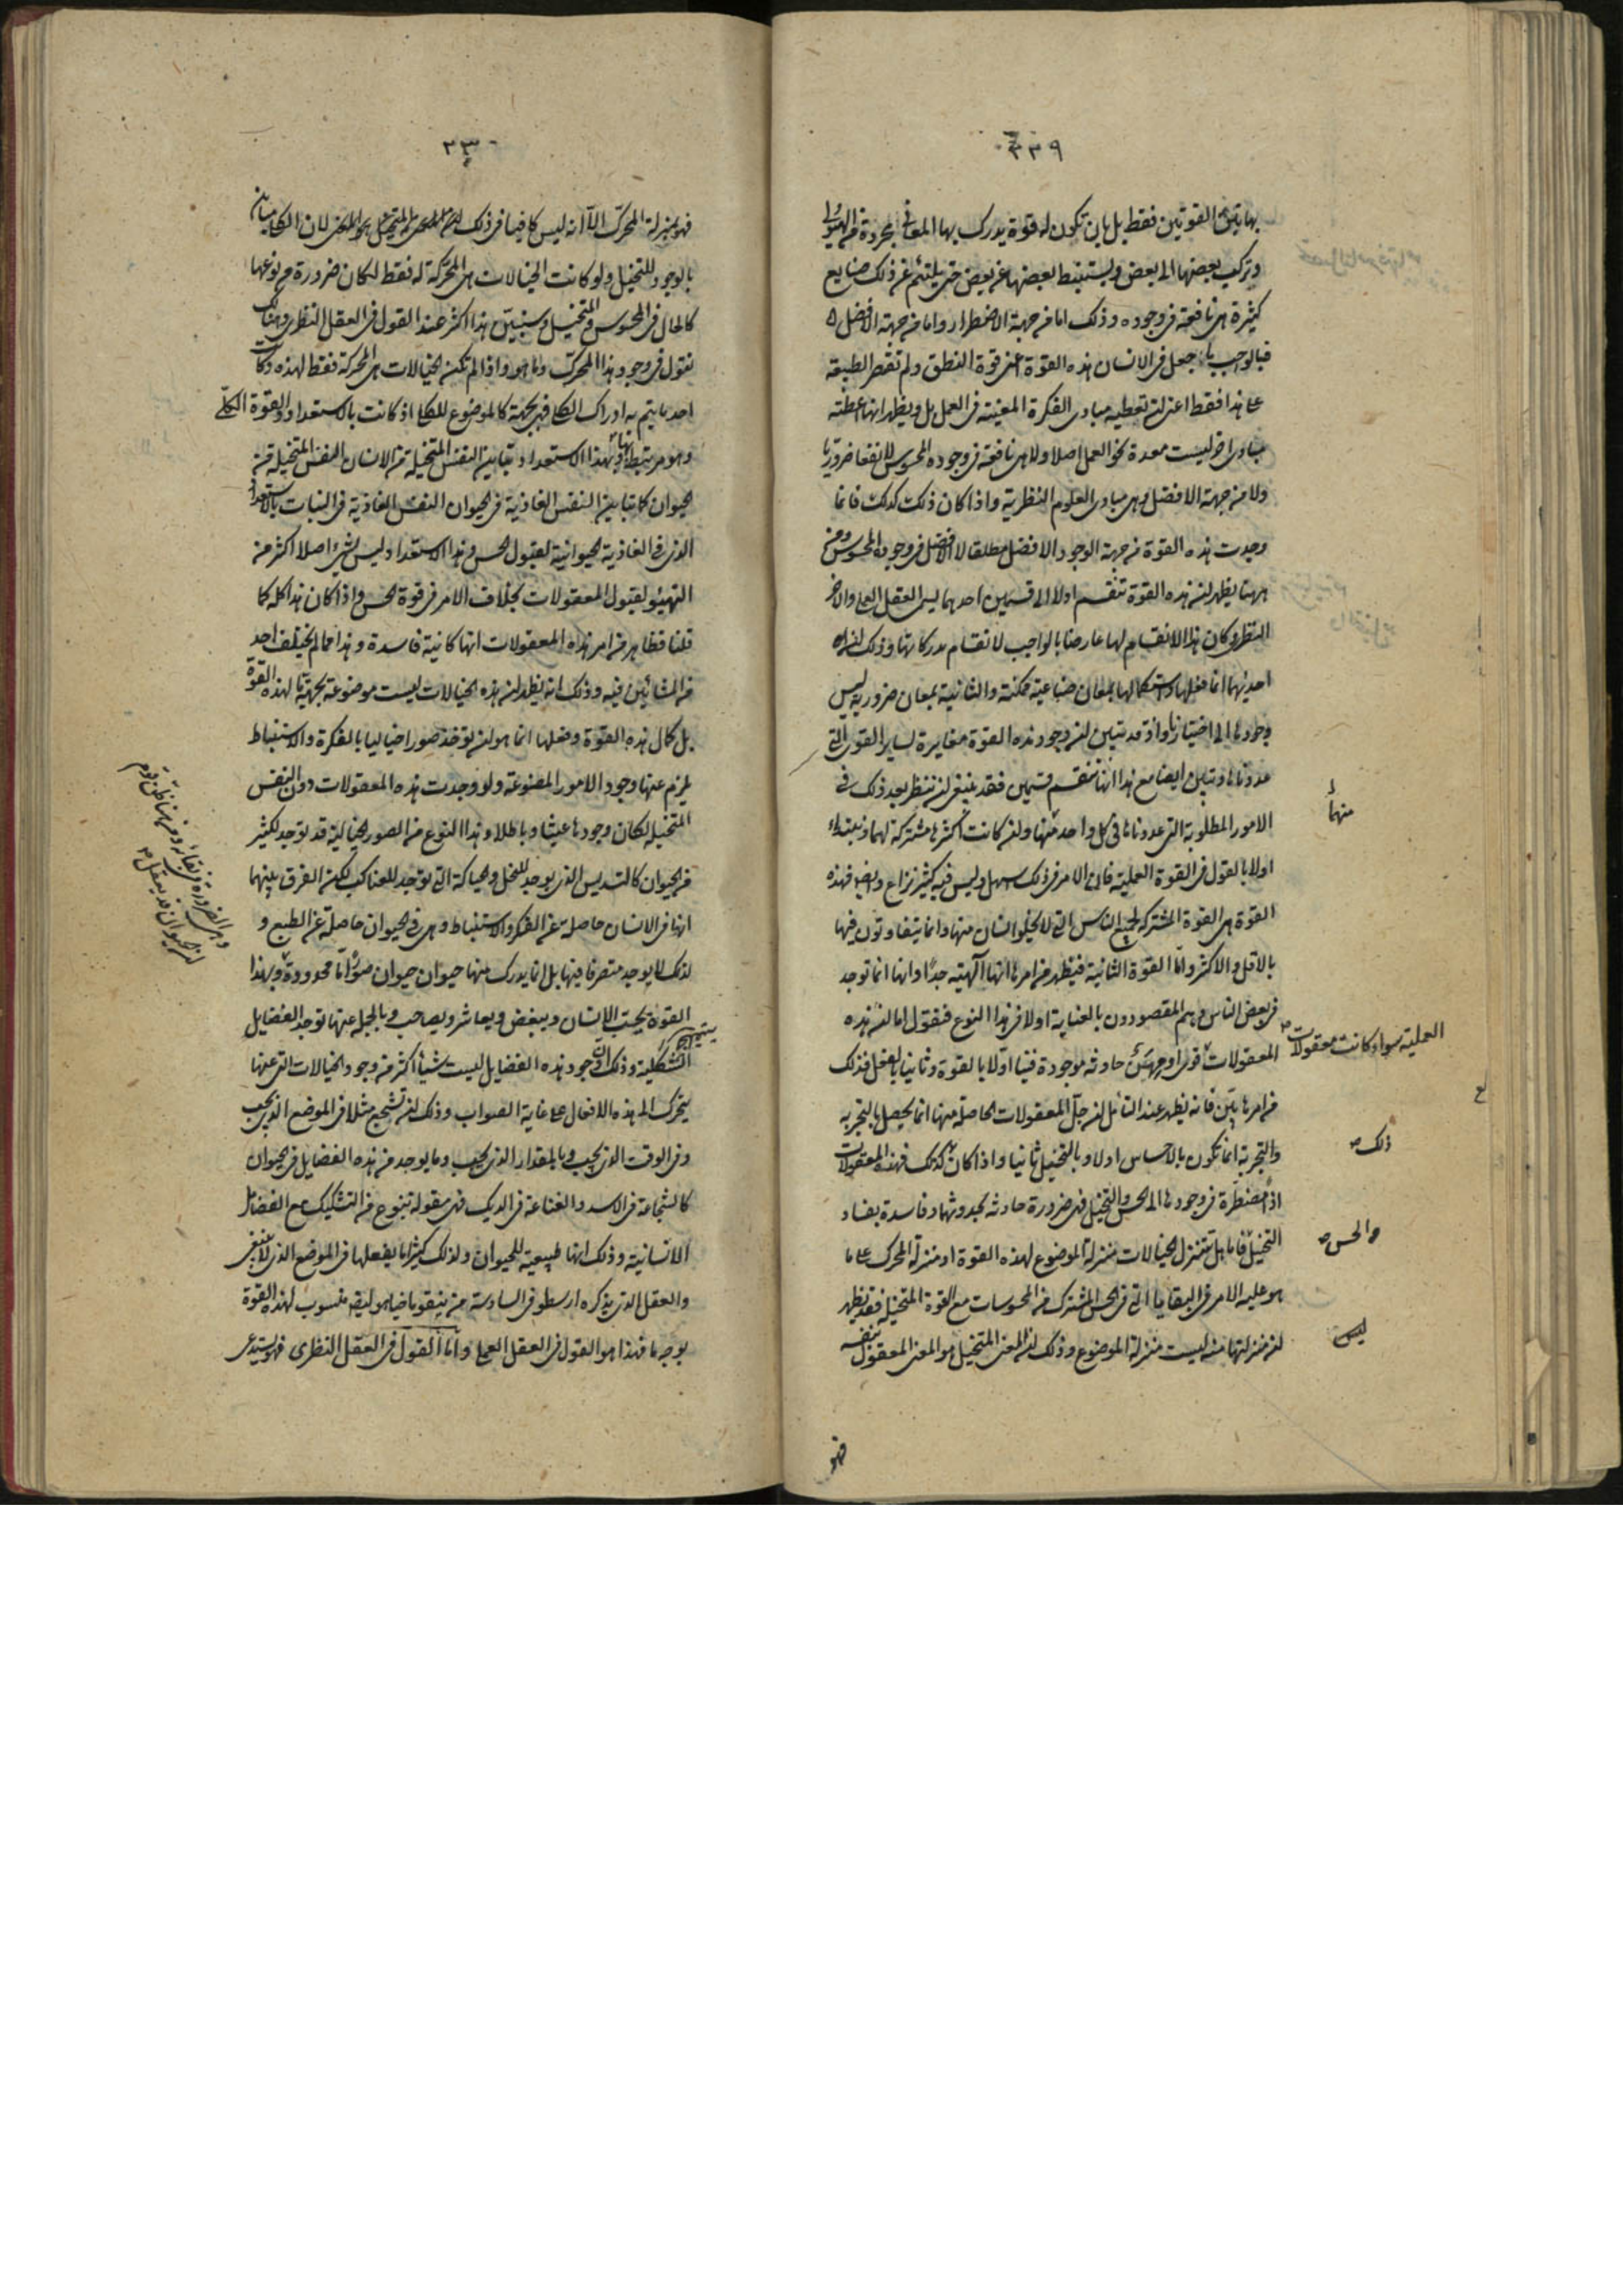 ٣٣٩
بهاتين القوتين فقط بل بان تكون له قوة يدرك بها المعانى مجردة من الهيولى
و يركب بعضها الى بعض و يستنبط بعضها عن بعض حتى يلتئم عن ذلك صنايع
كثيرة هى نافعة فى وجوده و ذلك اما من جهة الاضطرار و اما من جهة الافضل
فبالواجب ما جعل فى الانسان هذه القوة اعنى قوة النطق و لم تقصر الطبيعة
على هذا فقط اعنى ان تعطيه مبادى الفكرة المعينة فى العمل بل و يظهر انها اعطته
مبادى اخر ليست معدة نحو العمل اصلا و لا هى نافعة فى وجوده المحسوس لا نفعا ضروريا
و لا من جهة الافضل و هى مبادى العلوم النظرية و اذا كان ذلك كذلك فانما
وجدت هذه القوة من جهة الوجود الافضل مطلقا لا الافضل فى وجوده المحسوس و من
ههنا يظهر ان هذه القوة تنقسم اولا الى قسمين احدهما يسمى العقل العملى و الاخر
النظرى و كان هذا الانقسام لها عارضا بالواجب لانقسام مدركاتها و ذلك ان
احديهما انما فعلها و استكمالها بمعان صناعية ممكنة و الثانية بمعان ضرورية ليس
وجودها الى اختيارنا و اذ قد تبين ان وجود هذه القوة مغايرة لساير القوى التى
عددناها و تبين ايضا مع هذا انها تنقسم قسمين فقد ينبغى ان ننظر بعد ذلك فى
الامور المطلوبة التى عددناها فى كل واحد منها و ان كانت اكثرها مشتركة لهما و نبتدئ
منهما
اولا بالقول فى القوة العملية فان الامر فى ذلك سهل و ليس فيه كثير نزاع و ايضا فهذه
القوة هى القوة المشتركة لجميع الناس التى لا يخلو انسان منها و انما يتفاوتون فيها
بالاقل و الاكثر و اما القوة الثانية فيظهر من امرها انها الهية جدا و انها انما توجد
فى بعض الناس و هم المقصودون بالعناية اولا فى هذا النوع فنقول اما ان هذه
المعقولات قوى او مهن حادثة موجودة فينا اولا بالقوة و ثانيا بالفعل فذلك
العملية سواء كانت معقولات
من امرها بين فانه يظهر عند التامل ان جل المعقولات الحاصلة منها انما يحصل بالتجربة
و التجربة انما تكون بالاحساس اولا و بالتخيل ثانيا و اذا كان كذلك فهذه المعقولات
ذلك
اذا مضطرة فى وجودها الى الحس و التخيل فهى ضرورة حادثة بحدوثها و فاسدة بفساد
التخيل فاما هل تتنزل الخيالات منزلة الموضوع لهذه القوة او منزلة المحرك على ما
و الحس
هو عليه الامر فى البقايا التى فى الحس المشترك من المحسوسات مع القوة المتخيلة فقد يظهر
ان منزلتها منه ليست منزلة الموضوع و ذلك ان المعنى المتخيل هو المعنى المعقول بنفسه
ليس
فهو
٣٣٠
فهو بمنزلة المحرك الا انه ليس كافيا فى ذلك لان الكلى مباين
بالوجود للتخيل و لو كانت الخيالات هى المحركة له فقط لكان ضرورة من نوعها
كالحال فى المحسوس و المتخيل و سنبين هذا اكثر عند القول فى العقل النظرى و هناك
نقول فى وجود هذا المحرك و ما هو و اذا لم تكن الخيالات هى المحركة فقط لهذه و كانت
احد ما يتم به ادراك الكلى فهى بجهة كالموضوع للكلى اذ كانت بالاستعداد و القوة الكلى
و هو مرتبط بها و بهذا الاستعداد تباين النفس المتخيلة من الانسان النفس المتخيلة من
الحيوان كما تباين النفس الغاذية فى الحيوان النفس الغاذية فى النبات بالاستعداد
الذى فى الغاذية الحيوانية لقبول الحس و هذا الاستعداد ليس شيء اصلا اكثر من
التهيؤ لقبول المعقولات بخلاف الامر فى قوة الحس و اذا كان هذا كله كما
قلنا فظاهر من امر هذه المعقولات انها كائنة فاسدة و هذا مما لم يختلف احد
من المشائين فيه و ذلك انه يظهر ان هذه الخيالات ليست موضوعة بجهة ما لهذه القوة
بل كمال هذه القوة و فعلها انما هو ان توجد صورا خيالية بالفكرة و الاستنباط
يلزم عنها وجود الامور المصنوعة و لو وجدت هذه المعقولات دون النفس
المتخيلة لكان وجودها عبثا و باطلا و هذا النوع من الصور الخيالية قد توجد لكثير
من الحيوان كالتسديس الذى يوجد للنحل و الحياكة التى توجد للعناكب لكن الفرق بينهما
انها فى الانسان حاصلة عن الفكر و الاستنباط و هى فى الحيوان حاصلة عن الطبع و
لذلك لا يوجد متصرفا فيها بل انما يدرك منها حيوان حيوان صورا ما محدودة و بهذا
القوة يحب الانسان و يبغض و يعاشر و يصاحب و بالجملة عنها توجد الفضايل
الشكلية و ذلك ان وجود هذه الفضايل ليست شيأ اكثر من وجود الخيالات التى عنها
يتحرك الى هذه الافعال على غاية الصواب و ذلك ان تشجع مثلا فى الموضع الذى يجب
و فى الوقت الذى يجب و بالمقدار الذى يجب و ما يوجد من هذه الفضايل فى الحيوان
كالشجاعة فى الاسد و القناعة فى الديك فهى مقولة بنوع من التشكيك مع الفضايل
الانسانية و ذلك انها طبيعية للحيوان و لذلك كثيرا ما يفعلها فى الموضع الذى لا ينبغى
و العقل الذى يذكره ارسطو فى السادسة من نيقوماخيا هو منسوب لهذه القوة
بوجه ما فهذا هو القول فى العقل العملى و اما القول فى العقل النظرى فهو يستدعى